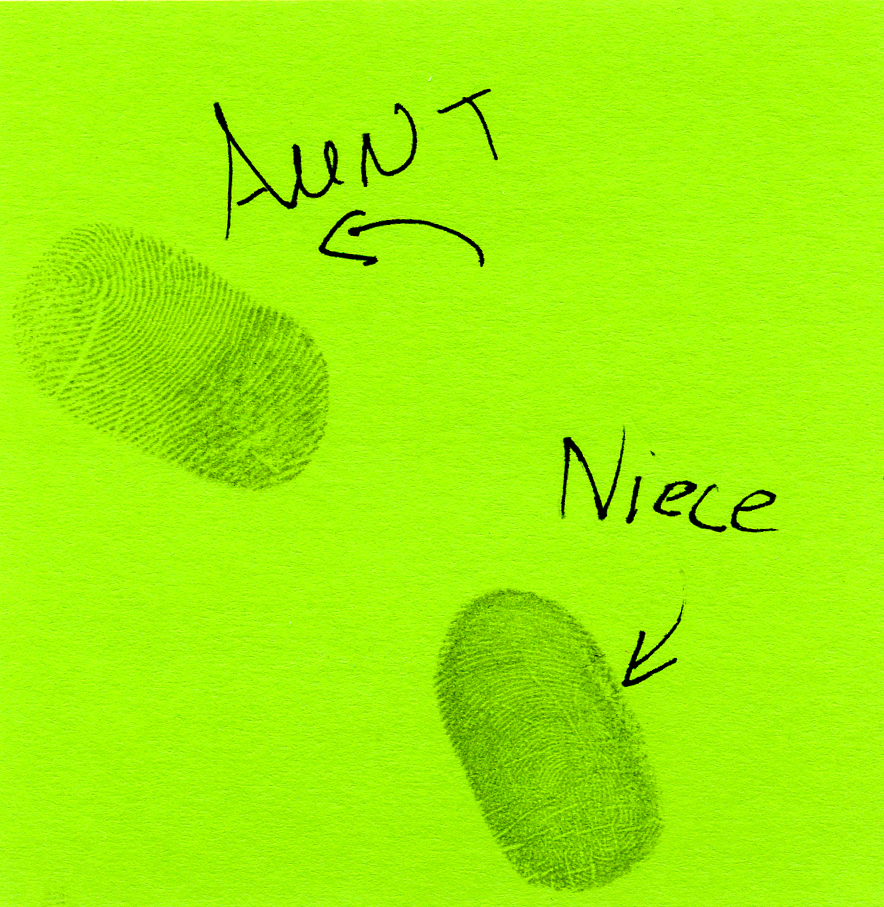 AuNT
Niece